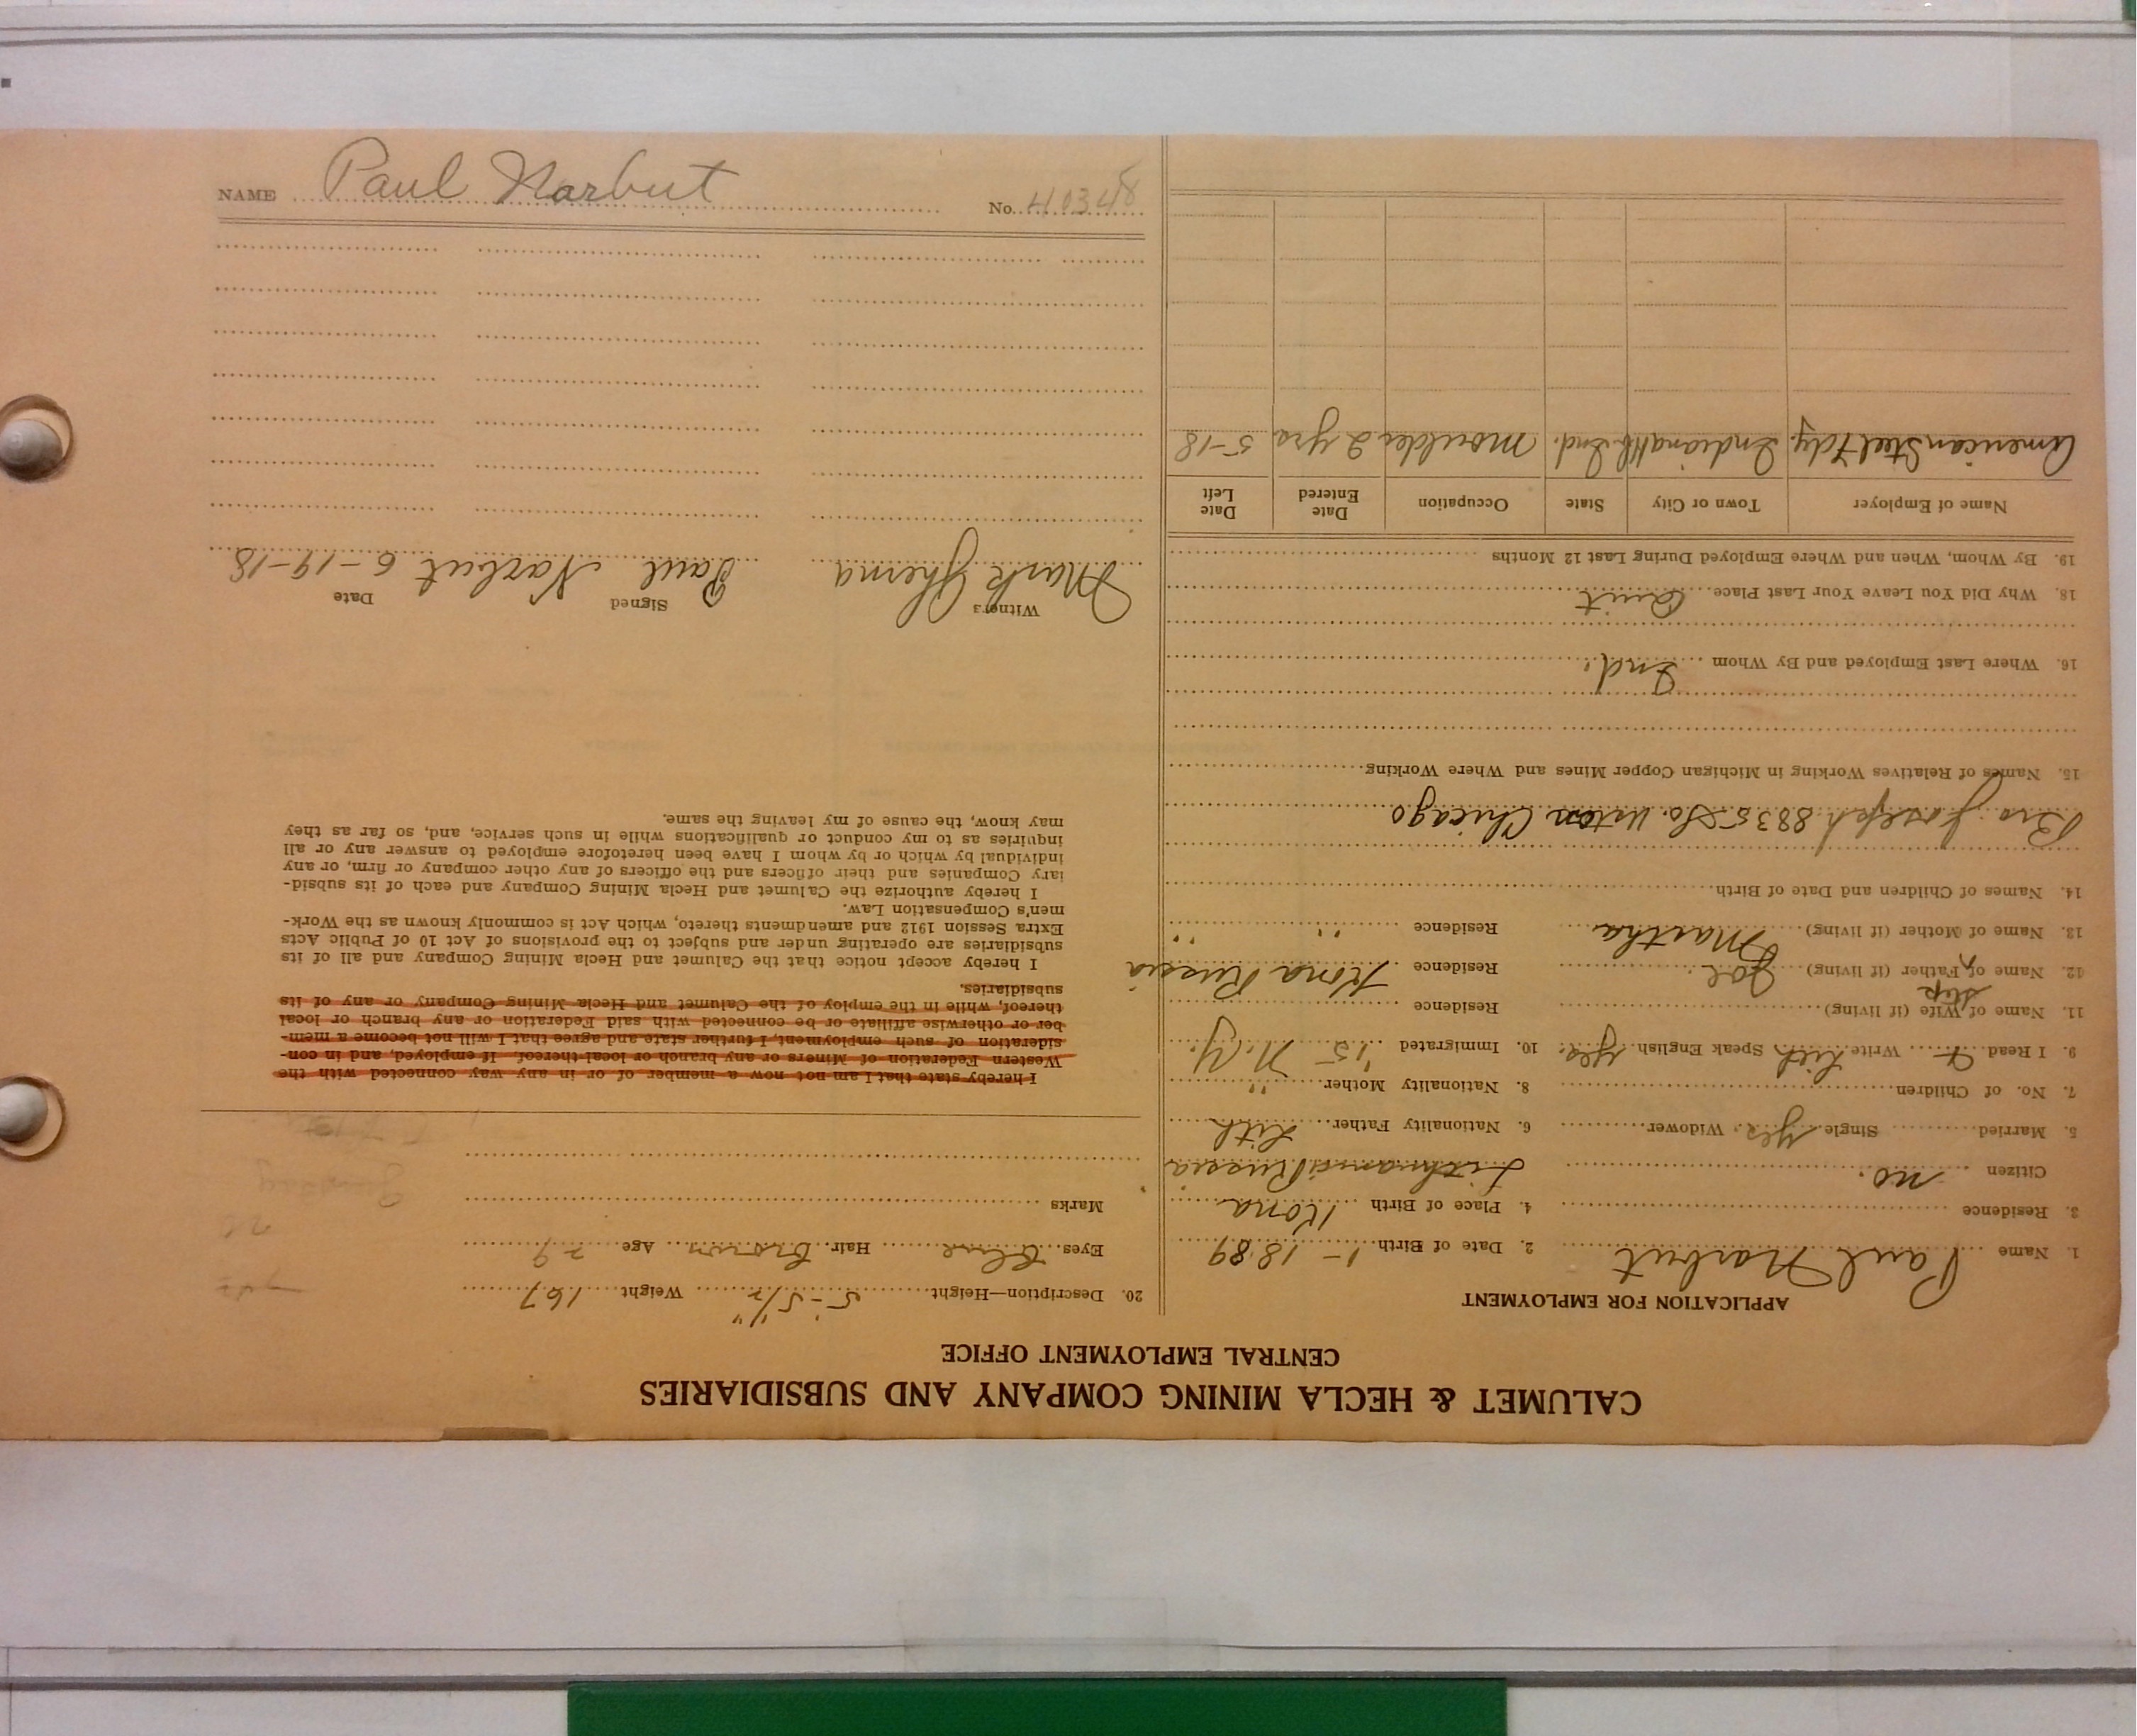 CALUMET & HECLA MINING COMPANY AND SUBSIDIARIES
CENTRAL EMPLOYMENT OFFICE
APPLICATION FOR EMPLOYMENT
1. Name Paul Narbut 2. Date of Birth 1-1889
3. Residence 4. Place of Birth Kona
Citizen no. Lithuania Russia
5. Married Single yes. Widower 6. Nationality Father Lith
7. No. of Children 8. Nationality Mother "
9. I Read & Write Lith Speak English yes. 10. Immigrated '15 N.Y.
11. Name of Wife (if living) Residence
12. Name of step Father (if living) Joe. Residence Kona Russia
13. Name of Mother (if living) Martha Residence " "
14. Names of Children and Date of Birth
Bro. Joseph 8835 So. Huston Chicago
15. Names of Relatives Working in Michigan Copper Mines and Where Working
16. Where Last Employed and By Whom Ind.
18. Why Did You Leave Your Last Place Quit
19. By Whom, When and Where Employed During Last 12 Months
Name of Employer Town or City State Occupation Date Entered Date Left
American Steel Fdy. Indiana Hb. Ind. Moulder 2 yrs 5-18
20. Description—Height 5'-5 1/2" Weight 167
Eyes Blue Hair Brown Age 29
Marks
I hereby state that I am not now a member of or in any way connected with the
Western Federation of Miners or any branch or local thereof. If employed, and in con-
sideration of such employment, I further state and agree that I will not become a mem-
ber or otherwise affiliate or be connected with said Federation or any branch or local
thereof, while in the employ of the Calumet and Hecla Mining Company or any of its
subsidiaries.
I hereby accept notice that the Calumet and Hecla Mining Company and all of its
subsidiaries are operating under and subject to the provisions of Act 10 of Public Acts
Extra Session 1912 and amendments thereto, which Act is commonly known as the Work-
men's Compensation Law.
I hereby authorize the Calumet and Hecla Mining Company and each of its subsid-
iary Companies and their officers and the officers of any other company or firm, or any
individual by which or by whom I have been heretofore employed to answer any or all
inquiries as to my conduct or qualifications while in such service, and, so far as they
may know, the cause of my leaving the same.
Witness Signed Date
Mark Paul Narbut 6-19-18
NAME Paul Narbut No. 40348